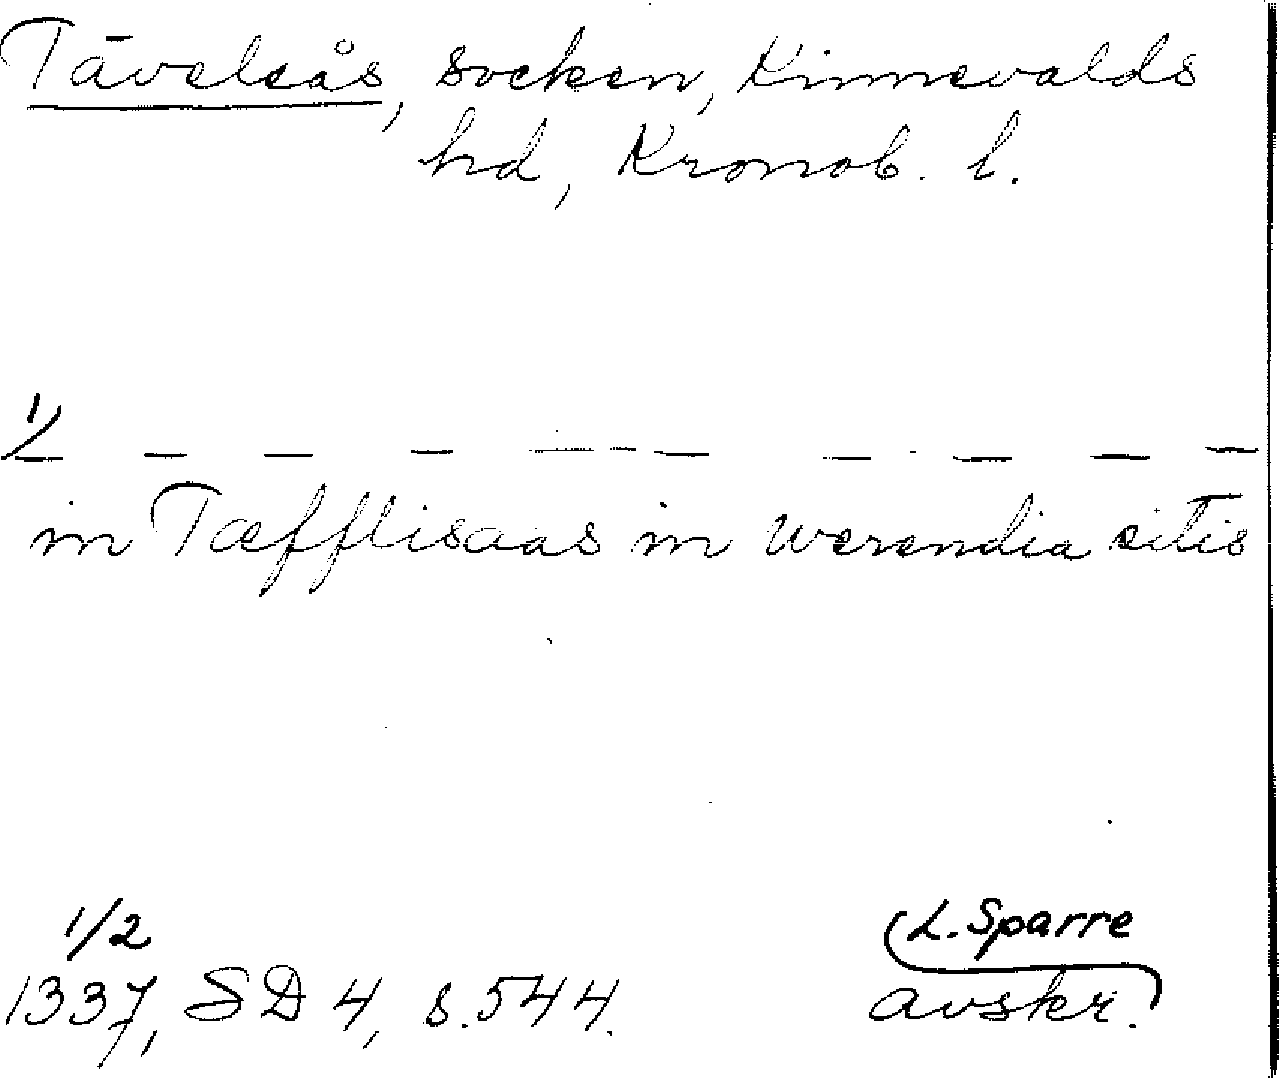 Tävelsås, socken, Kinnevalds
hd, Kronob. l.
1/ — — — — — — — — —
in Tæfflisaas in werendia sitis
1/2
1337, SD 4, s. 544.
L. Sparre
avskr.